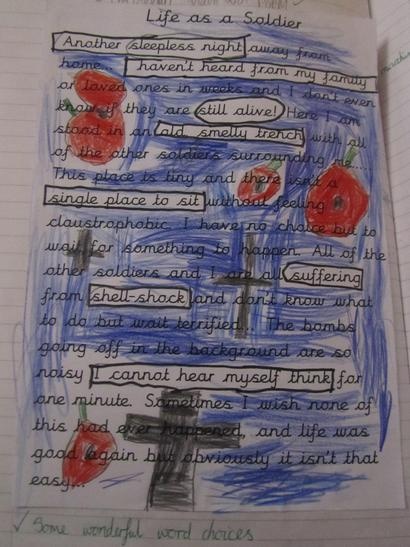 Life as a Soldier
Another sleepless night away from
home... I haven't heard from my family
or loved ones in weeks and I don't even
know if they are still alive! Here I am
stood in an old smelly trench with all
of the other soldiers surrounding me....
This place is tiny and there isn't a
single place to sit without feeling
claustrophobic. I have no choice but to
wait for something to happen. All of the
other soldiers and I are all suffering
from shell-shock and don't know what
to do but wait terrified... The bombs
going off in the background are so
noisy I cannot hear myself think for
one minute. Sometimes I wish none of
this had ever happened, and life was
good again but obviously it isn't that
easy...
✓ Some wonderful word choices